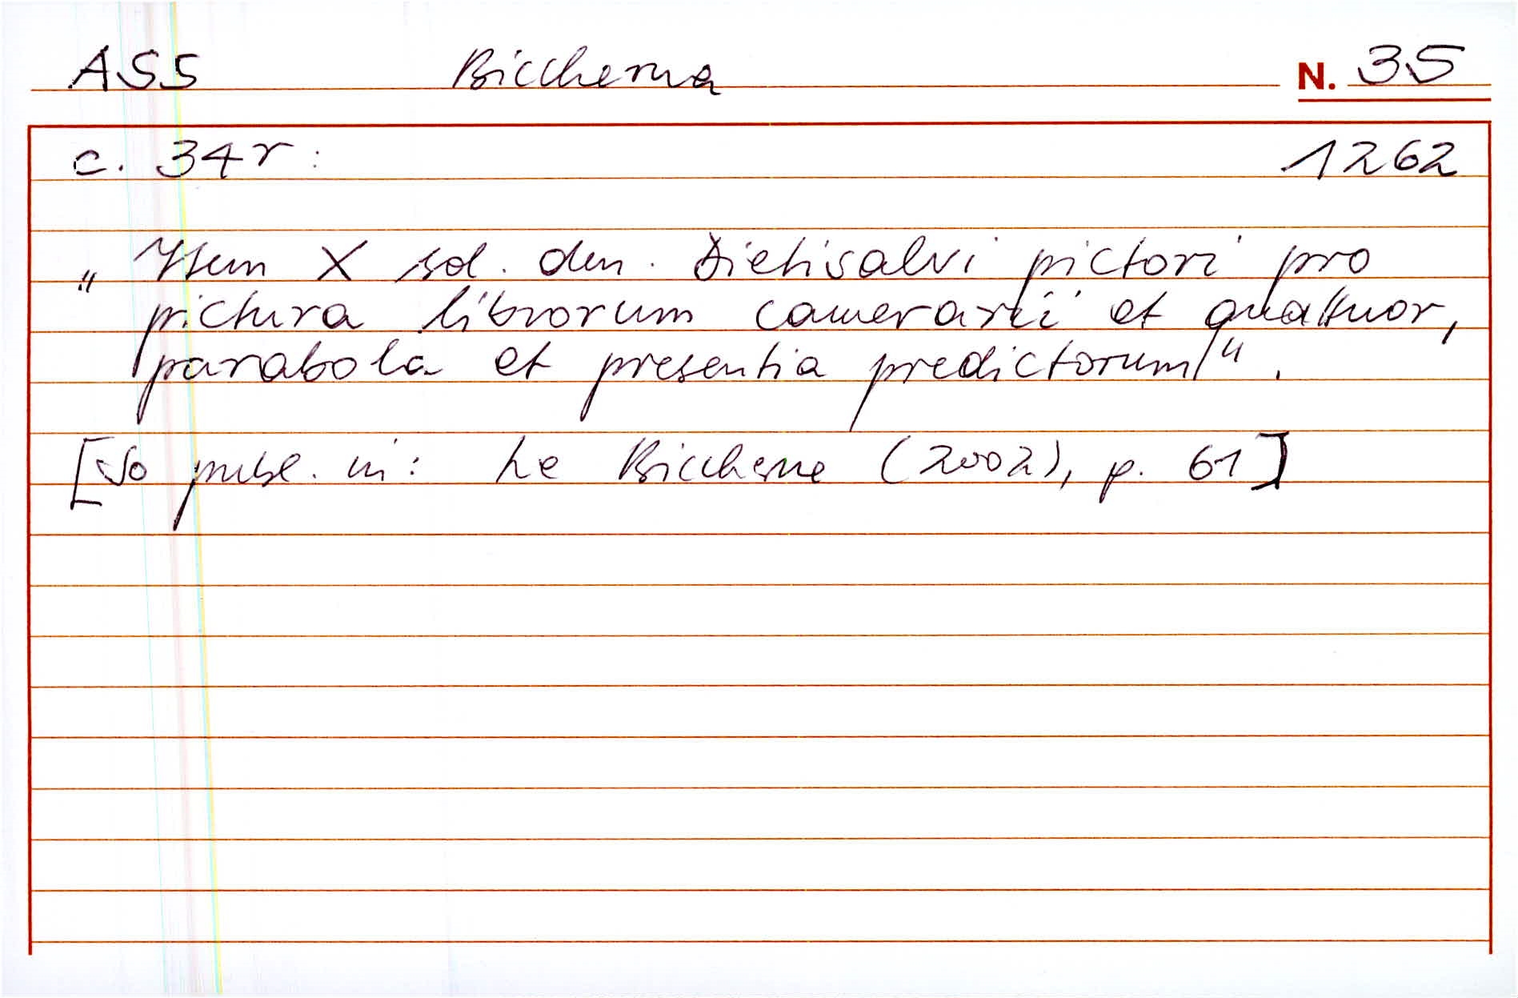 ASS Biccherna N. 35
c. 34r: 1262
„Item X sol. den. Dietisalvi pictori pro
pictura librorum camerarii et quattuor,
parabola et presentia predictorum".
[So publ. in: Le Biccherne (2002), p. 61]